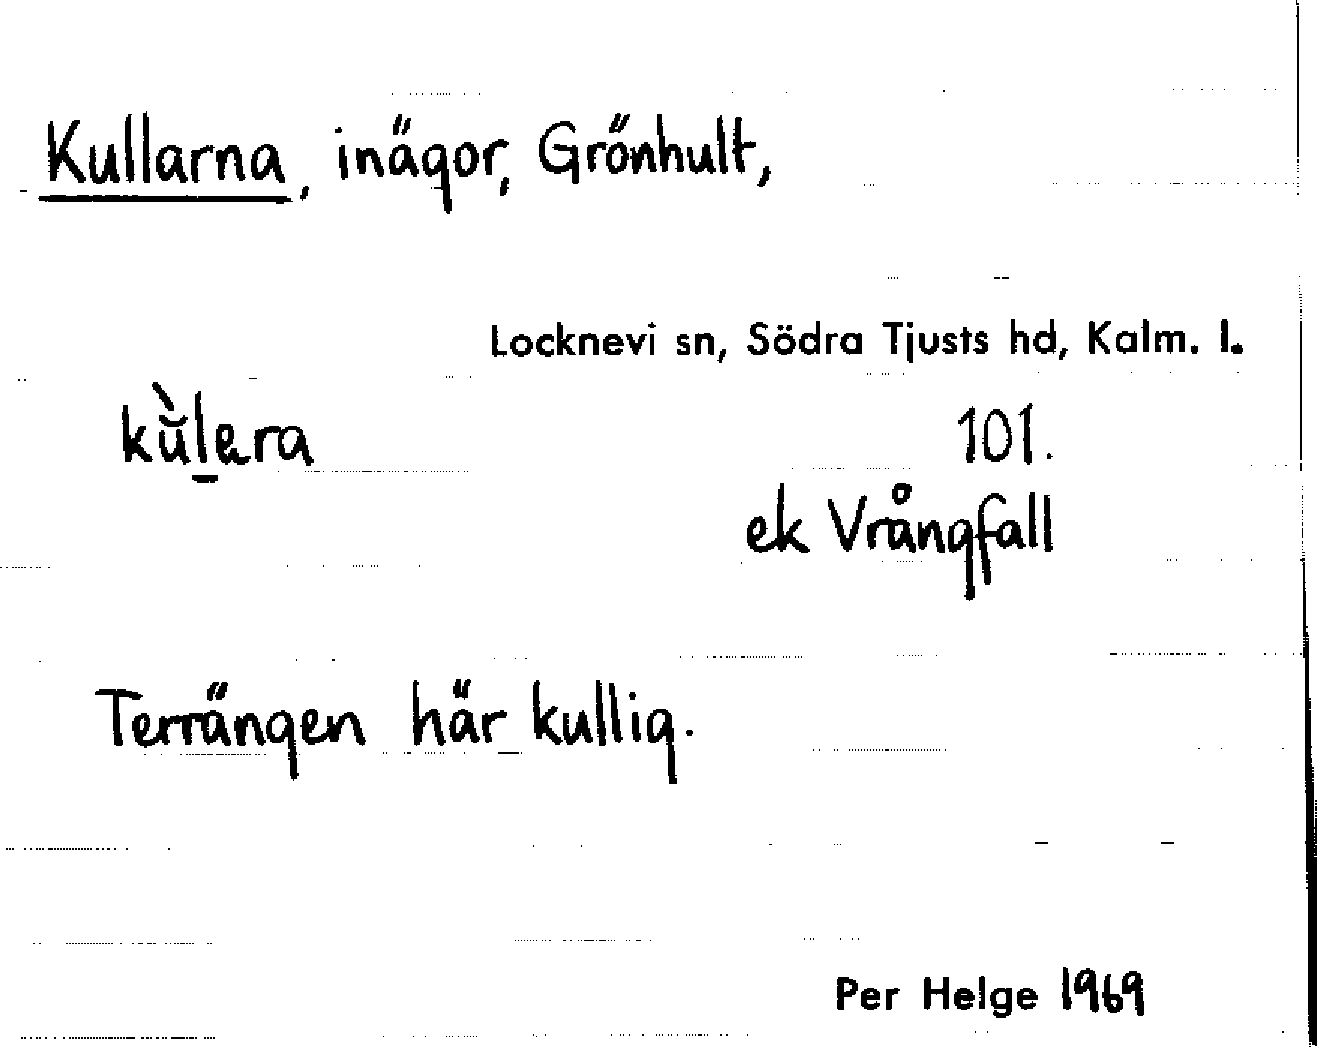 Kullarna, inägor, Grönhult,
Locknevi sn, Södra Tjusts hd, Kalm. l.
kùl̠era
101.
ek Vrångfall
Terrängen här kullig.
Per Helge 1969